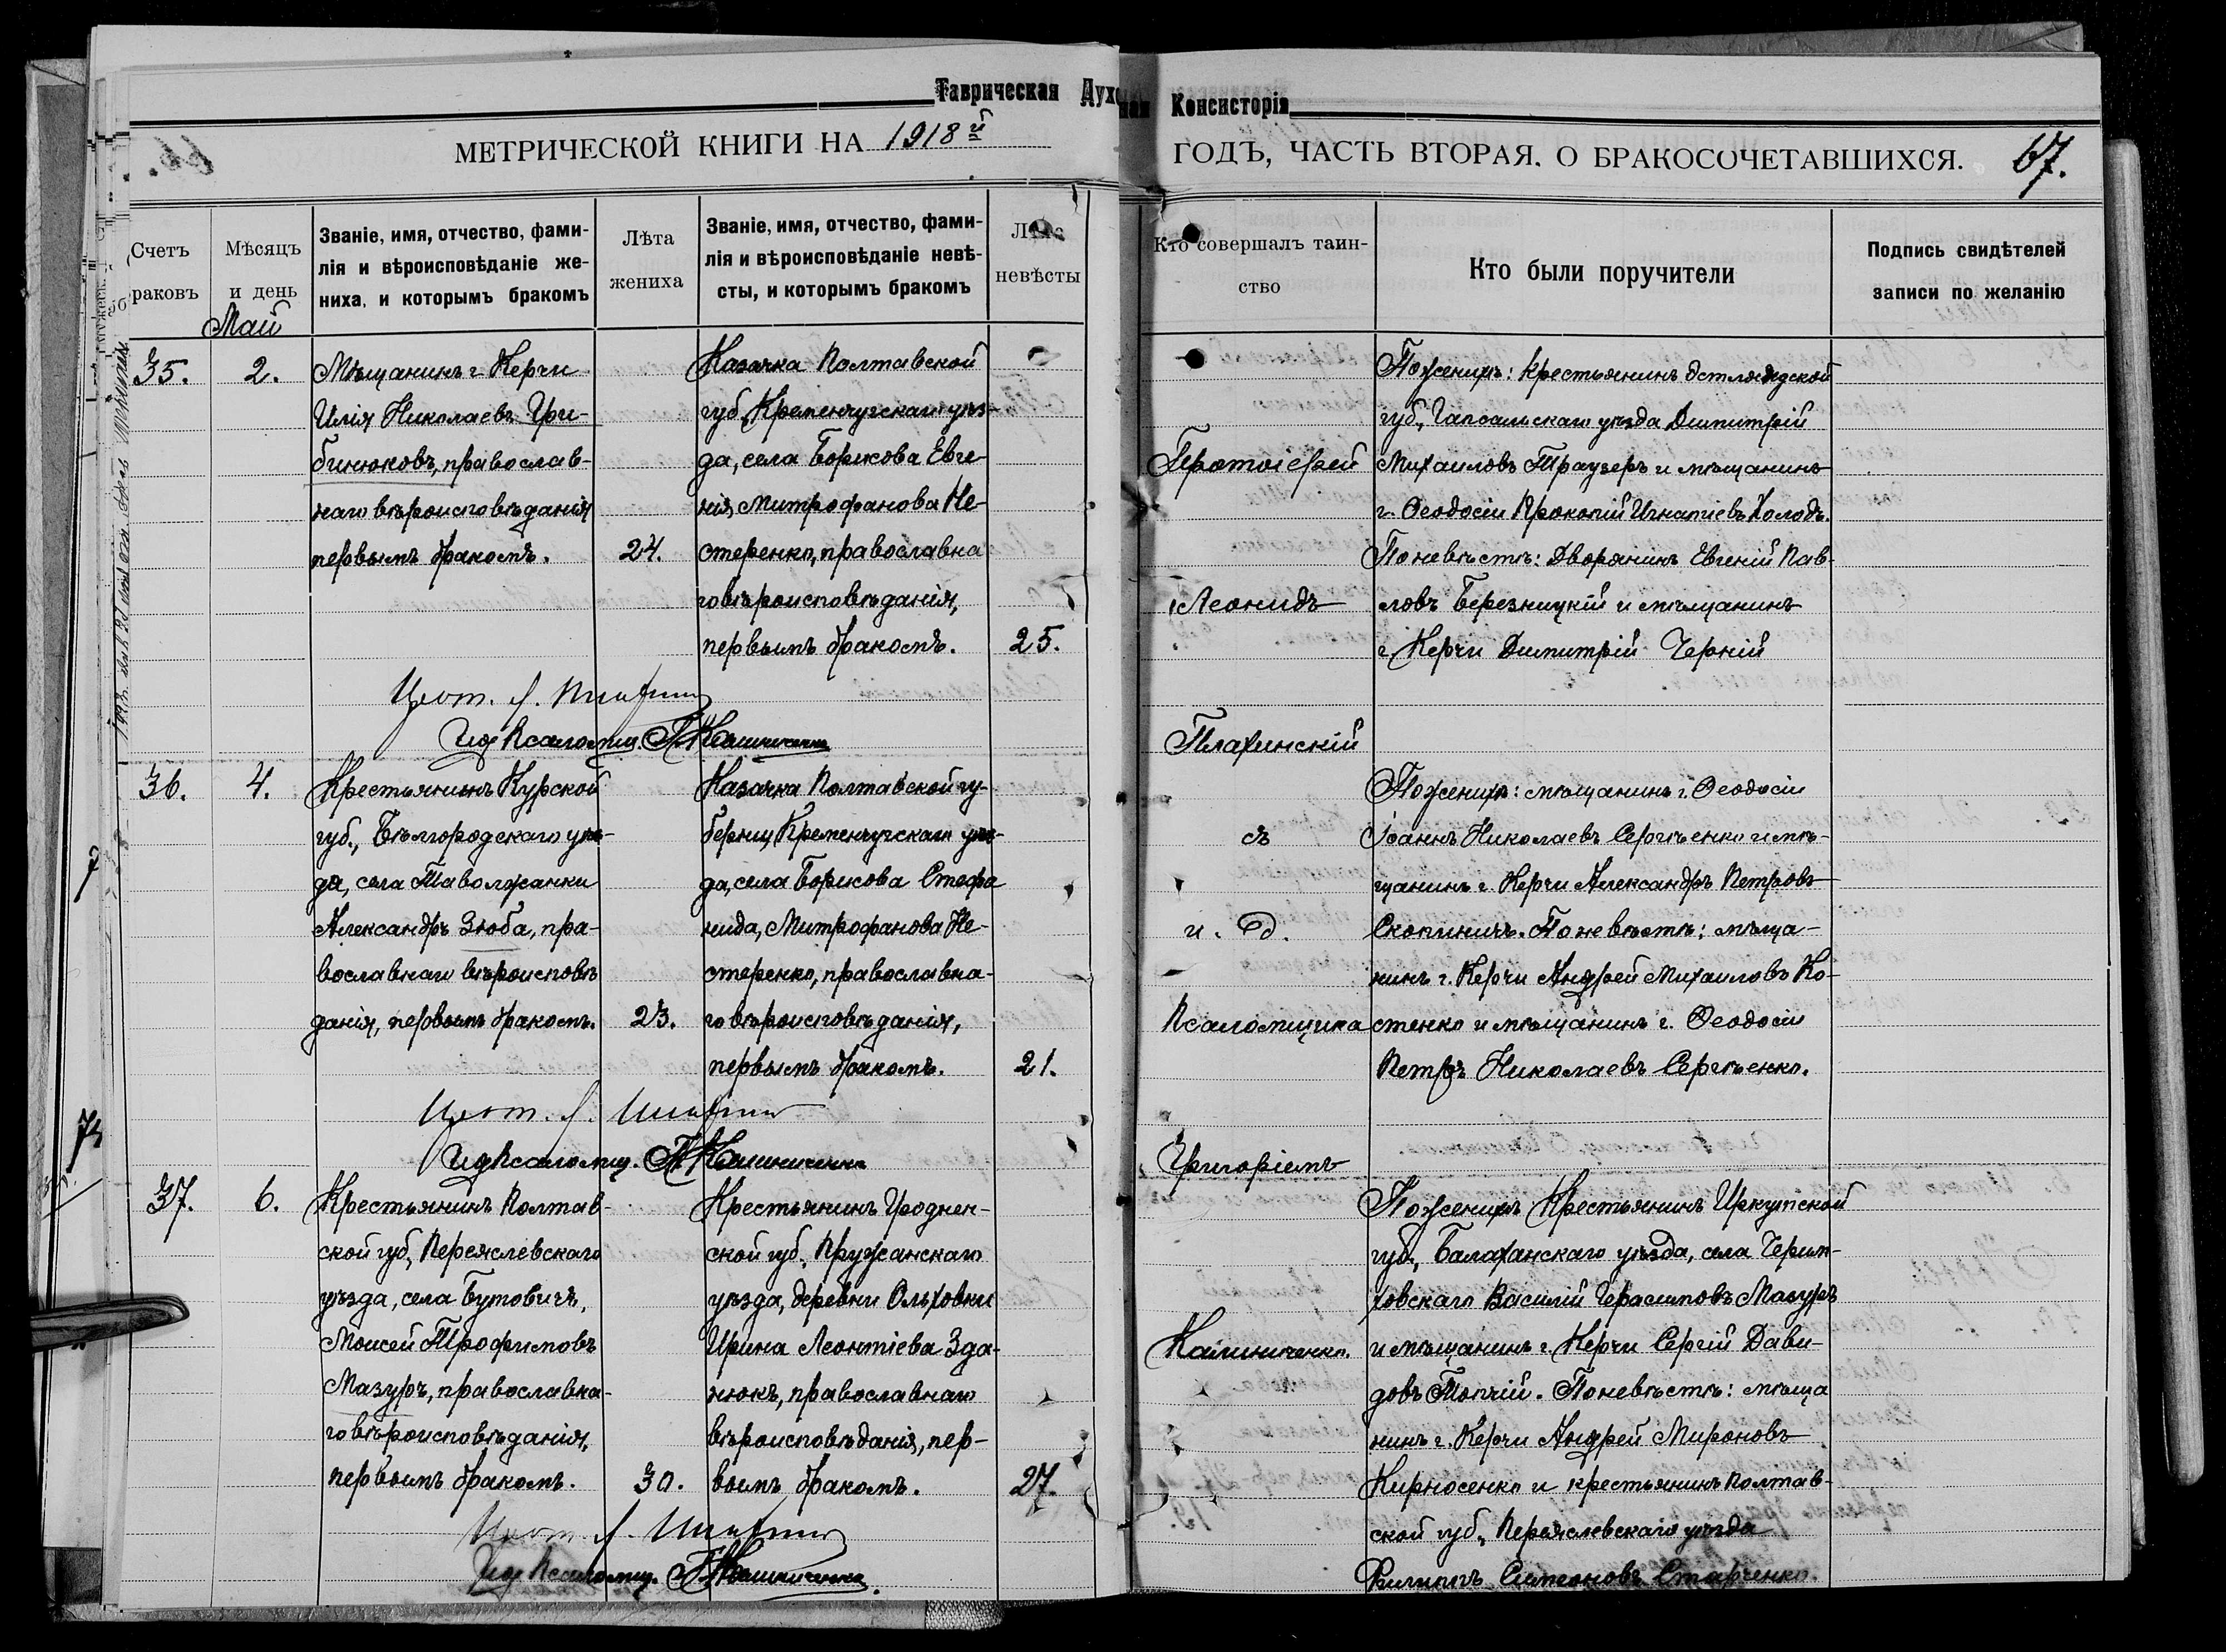 Таврическая Духо
ная Консисторія
МЕТРИЧЕСКОЙ КНИГИ НА 1918й
ГОДЪ, ЧАСТЬ ВТОРАЯ. О БРАКОСОЧЕТАВШИХСЯ. 67.
Счетъ
раковъ
Мѣсяцъ
и день
Званіе, имя, отчество, фами-
лія и вѣроисповѣданіе же-
ниха, и которымъ бракомъ
Лѣта
жениха
Званіе, имя, отчество, фами-
лія и вѣроисповѣданіе невѣ-
сты, и которымъ бракомъ
Лѣта
невѣсты
Кто совершалъ таин-
ство
Кто были поручители
Подпись свидѣтелей
записи по желанію
Май
35.
2.
Мѣщанинъ г. Керчи
Илія Николаевъ Гри-
бинюковъ, православ-
наго вѣроисповѣданія
первымъ бракомъ.
24.
Казачка Полтавской
губ., Кременчугскаго уѣз-
да, села Борисова Евге-
нія Митрофанова Не-
стеренко, православна
го вѣроисповѣданія,
первымъ бракомъ.
25.
Протоіерей
Леонидъ
Плахинскій
съ
и. д.
Псаломщика
Григоріемъ
Калиниченко.
По женихѣ: крестьянинъ Эстляндской
губ., Гапсальскаго уѣзда Димитрій
Михаиловъ Траузеръ и мѣщанинъ
г. Ѳеодосіи Прокопій Игнатіевъ Холодъ.
По невѣстѣ: Дворянинъ Евгеній Пав-
ловъ Березницкій и мѣщанинъ
г. Керчи Димитрій Черній
Прот. Л.
И. д. Псаломщ. Г. Калиниченко
36.
4.
Крестьянинъ Курской
губ., Бѣлгородскаго уѣз-
да, села Таволжанки
Александръ Зюба, пра-
вославнаго вѣроисповѣ
данія, первымъ бракомъ.
23.
Казачка Полтавской гу-
берніи, Кременчугскаго уѣз-
да, села Борисова Стефа
нида, Митрофанова Не-
стеренко, православна-
го вѣроисповѣданія,
первымъ бракомъ.
21.
По женихѣ: мѣщанинъ г. Ѳеодосіи
Іоаннъ Николаевъ Сергѣенко и мѣ-
щанинъ г. Керчи Александръ Петровъ
Скопиничъ. По невѣстѣ: мѣща-
нинъ г. Керчи Андрей Михаиловъ Ко-
стенко и мѣщанинъ г. Ѳеодосіи
Петръ Николаевъ Сергѣенко.
Прот. Л.
И. д. Псаломщ. Г. Калиниченко
37.
6.
Крестьянинъ Полтав-
ской губ., Переяслевскаго
уѣзда, села Бутовичъ,
Моисей Трофимовъ
Мазуръ, православна-
го вѣроисповѣданія,
первымъ бракомъ.
30.
Крестьянинъ Гроднен-
ской губ., Пружанскаго
уѣзда, деревни Ольховки
Ирина Леонтіева Зда-
нюкъ, православнаго
вѣроисповѣданія, пер-
вымъ бракомъ.
27.
По женихѣ Крестьянинъ Иркутской
губ., Балаханскаго уѣзда, села Черем-
ховскаго Василій Герасимовъ Мазуръ
и мѣщанинъ г. Керчи Сергій Дави-
довъ Топчій. По невѣстѣ: мѣща
нинъ г. Керчи Андрей Мироновъ
Кирносенко и крестьянинъ Полтав-
ской губ., Переяслевскаго уѣзда
Филиппъ Симеоновъ Старченко.
Прот. Л.
И. д. Псаломщ. Г. Калиниченко.